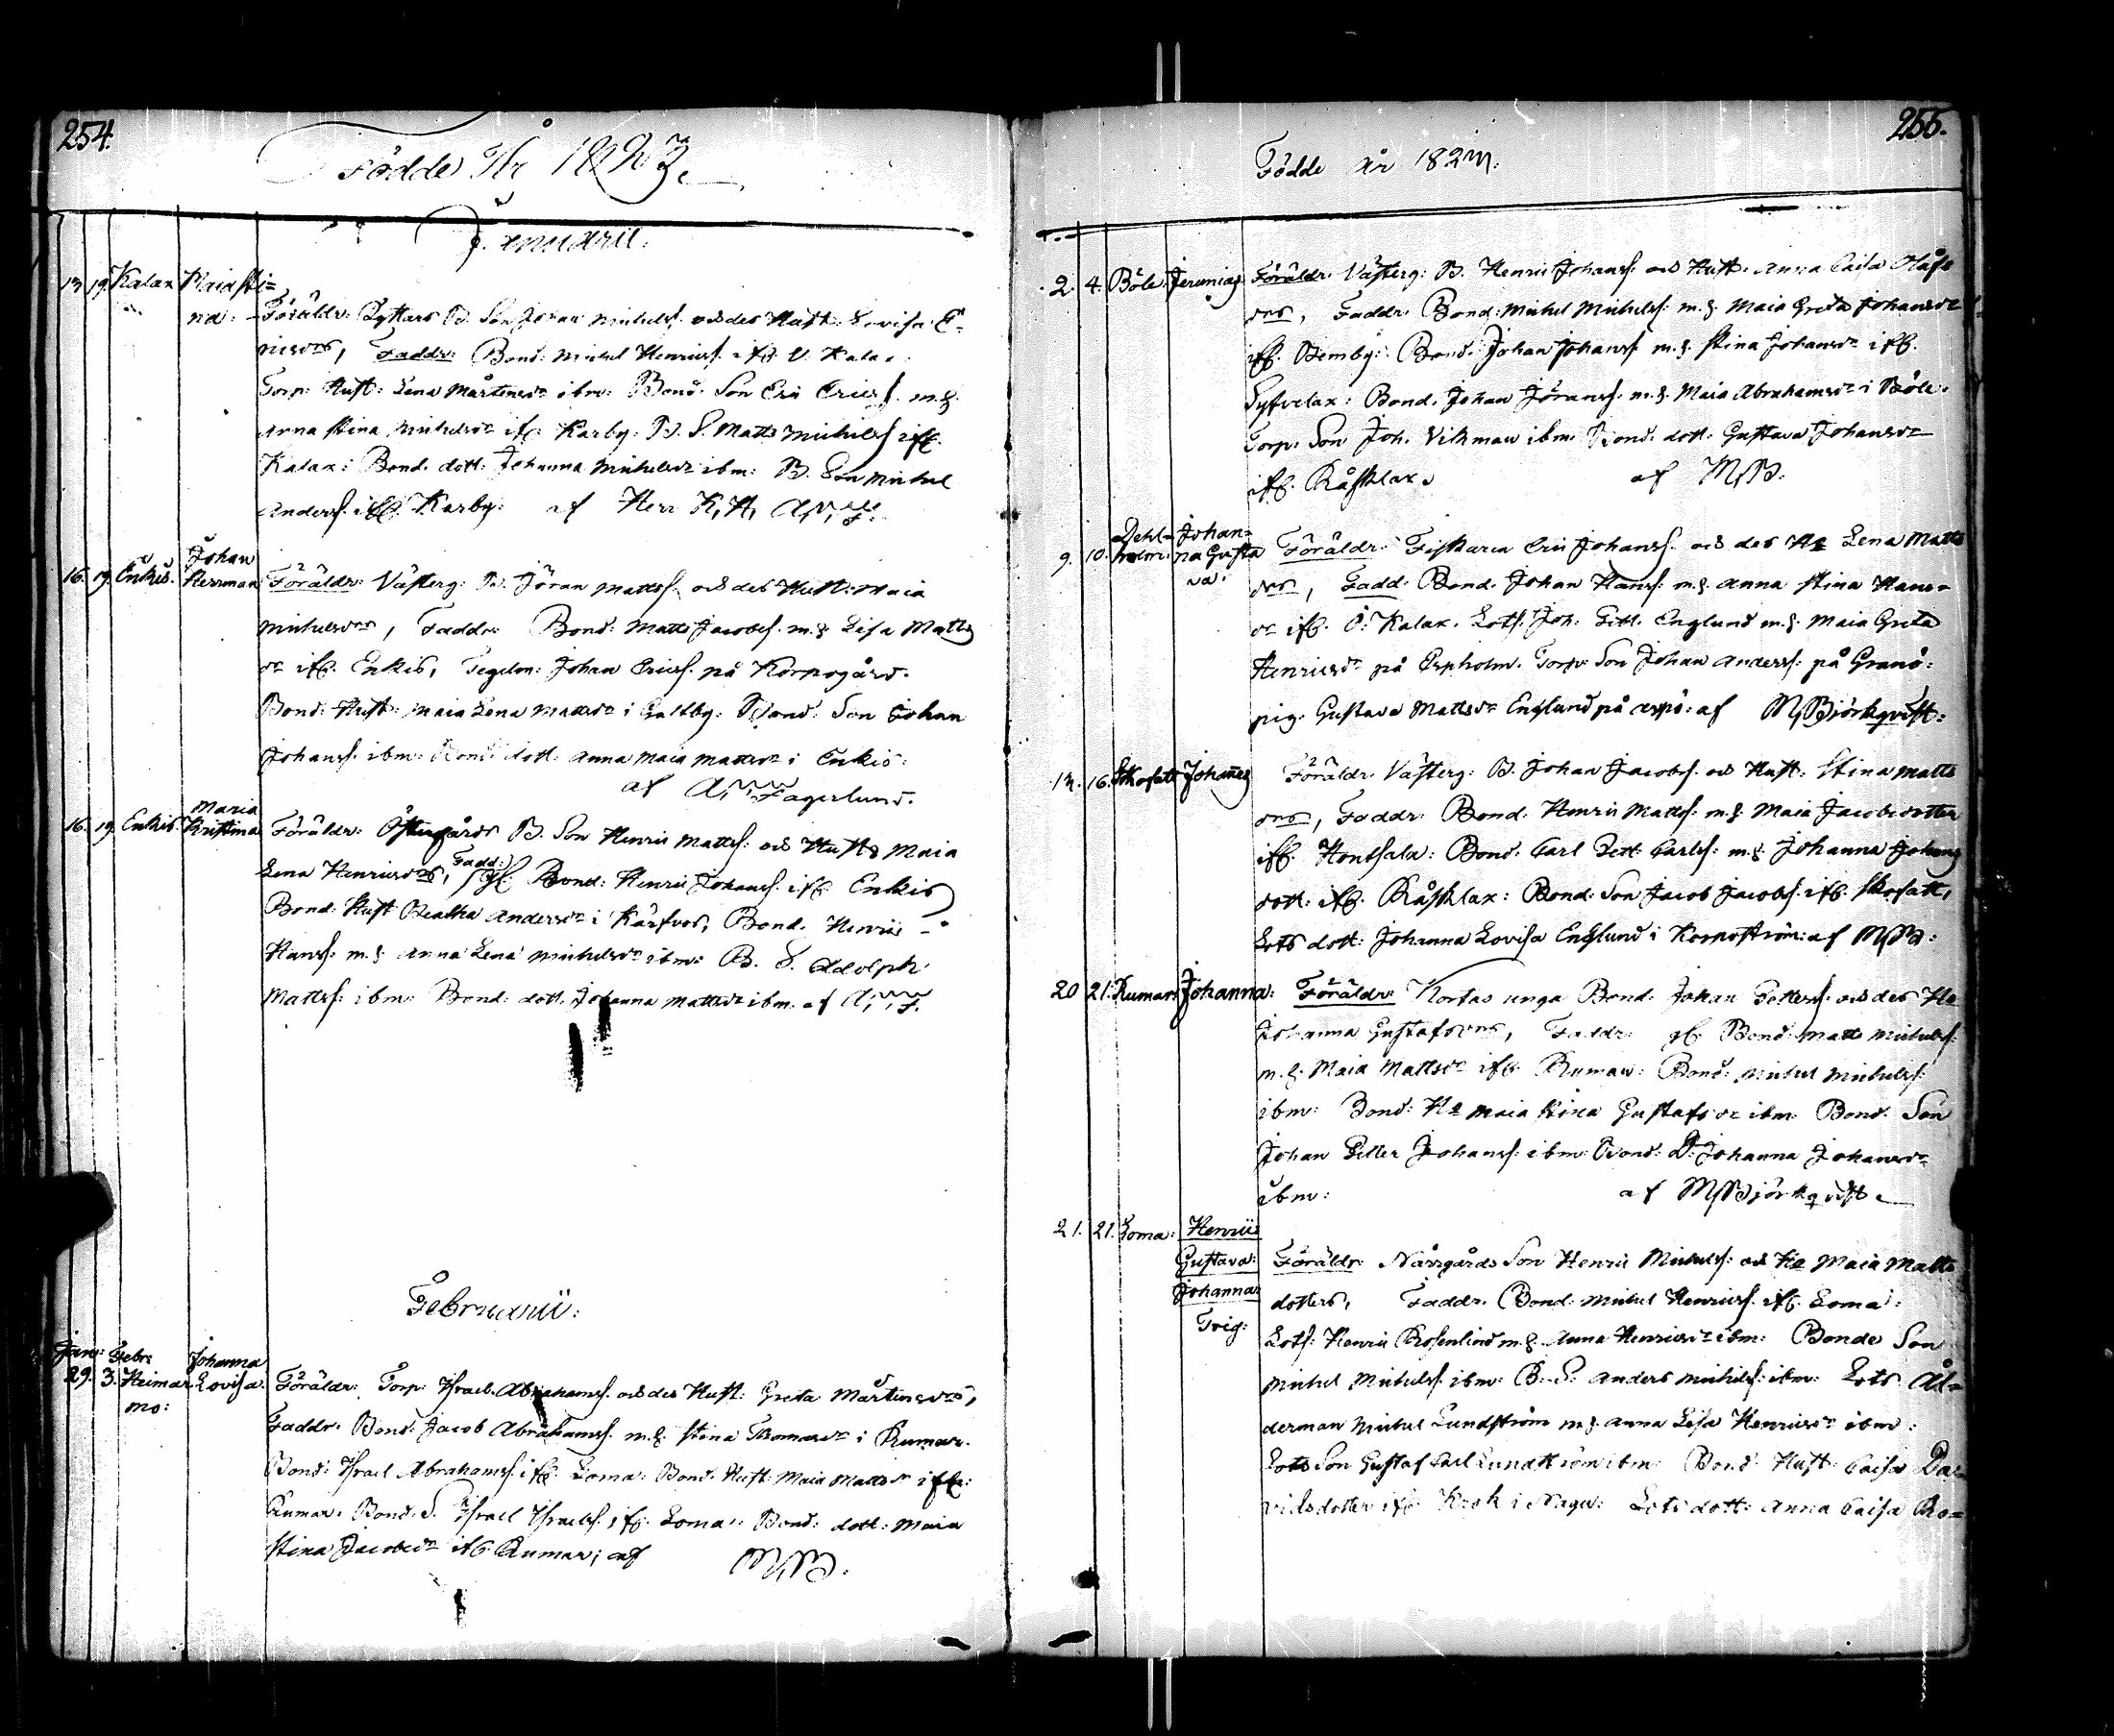 254.
Födde År 1823.
Januarii.
13. 19. Kalax Maia Sti=
na: Föräldr: Ryttars B. Son Jöran Michelss. och des Hust: Lovisa E=
ricsdrs, Faddr: Bond: Michel Henricss. ifr. V. Kalax
Torp: Hust: Lena Mårtensdr ibm: Bond. Son Eric Ericss. m.h.
Anna Stina Michelsdr ifr. Karby: B. S. Matts Michelss ifr.
Kalax: Bond. dott. Johanna Michelsdr ibm: B. Son Michel
Anderss. ifr. Karby: af Herr K. H. A.
16. 19. Enkis. Johan
Herrman Föräldr: Västerg: B. Jöran Mattss. och des Hust: Maia
Michelsdrs, Faddr: Bond: Matts Jacobss. m.h. Lisa Matts
dr ifr. Enkis, Tegelm: Johan Ericss. på Korpogård.
Bond: Hust: Maia Lena Mattsdr i Galtby: Bond: Son Johan
Johanss. ibm: Bond: dott. Anna Maia Mattsdr i Enkis:
af A. Fagerlund.
16. 19. Enkis. Maria
Kristina Föräldr: Östergårds B. Son Henric Mattss: och Hust: Maia
Lena Henricsdrs, Fadd: Bond: Henric Johanss. ifr. Enkis
Bond: Hust Beatha Andersdr i Kärfvos, Bond. Henric
Hanss: m.h. Anna Lena Michelsdr ibm: B. S. Adolph
Mattss: ibm: Bond: dott. Johanna Mattsdr ibm. af A. F.
Februarii:
Janu: Febr: Johanna
29. 3. Heimar Lovisa. Föräldr: Torp: Israel Abrahamss. och des Hust: Greta Mårtensdrs,
mo:
Faddr. Bond: Jacob Abrahamss. m.h. Stina Thomasdr i Rumar.
Bond: Israel Abrahamss. ifr. Loma: Bond: Hust Maia Mattsdr ifr:
Rumar. Bond: S. Israel Israelss. ifr. Loma: Bond: dott: Maia
Stina Jacobsdr ifr. Rumar; af M.B.
255.
Födde År 1823.
2. 4. Böle. Jeremias Föräldr. Västerg: B. Henric Johanss: och Hust. Anna Caisa Olofs
drs, Faddr. Bond: Michel Michelss: m.h. Maia Greta Johansdr
ifr. Bemby: Bond. Johan Johanss m.h. Stina Johansdr ifr.
Syfvelax: Bond. Johan Jöranss. m.h. Maia Abrahamsdr i Böle.
Torp: Son Joh. Vikman ibm. Bond. dott. Gustava Johansdr
ifr. Råsklax. af M.B.
9. 10. holm. Johan=
na Gusta
va: Föräldr: Fiskaren Eric Johanss. och des He Lena Matts
drs, Fadd: Bond. Johan Hanss: m.h. Anna Stina Hans=
dr ifr. Ö. Kalax. Lots. Joh. Englund m.h. Maia Greta
Henricsdr på Espholm. Torp: Son Johan Anderss: på Granö:
pig. Gustava Mattsdr Englund på Aspö: af M. Björkqvist:
13. 16. Skofatt Johannes Föräldr. Västerg: B. Johan Jacobss. och Hust: Stina Matts
drs, Faddr: Bond. Henric Mattss: m.h. Maia Jacobsdotter
ifr. Hontsala: Bond. Carl Carlss: m.h. Johanna Johans
dott. ifr. Råsklax: Bond: Son Jacob Jacobss. ifr. Skofatt,
Lots dott: Johanna Lovisa Englund i Korpoström: af M.B:
20 21. Rumar Johanna: Föräldr: Kortas unga Bond: Johan Petterss. och des He
Johanna Gustafsdrs, Faddr: gl. Bond: Matts Michelss:
m.h. Maia Mattsdr ifr. Rumar: Bond: Michel Michelss:
ibm: Bond: He Maia Stina Gustafsdr ibm. Bond. Son
Johan Petter Johanss: ibm: Bond: D: Johanna Johansdr
ibm: af M. Björkqvist.
21. 21. Loma: Henric
Gustava: Föräldr: Norrgårds Son Henric Michelss: och He Maia Matts
Johanna dotters, Faddr. Bond: Michel Henricss. ifr. Loma:
Trig: Lots: Henric Rosenlind m.h. Anna Henricsdr ibm: Bonde Son
Michel Michelss. ibm: B. S. Anders Michelss. ibm: Lots Ål=
derman Michel Lundström m.h. Anna Lisa Henricsdr ibm:
Lots Son Gustaf Carl Lundström ibm: Bond: Hust: Caisa Da=
vidsdotter ifr. Krok i Nagu: Lots dott: Anna Caisa Ro=